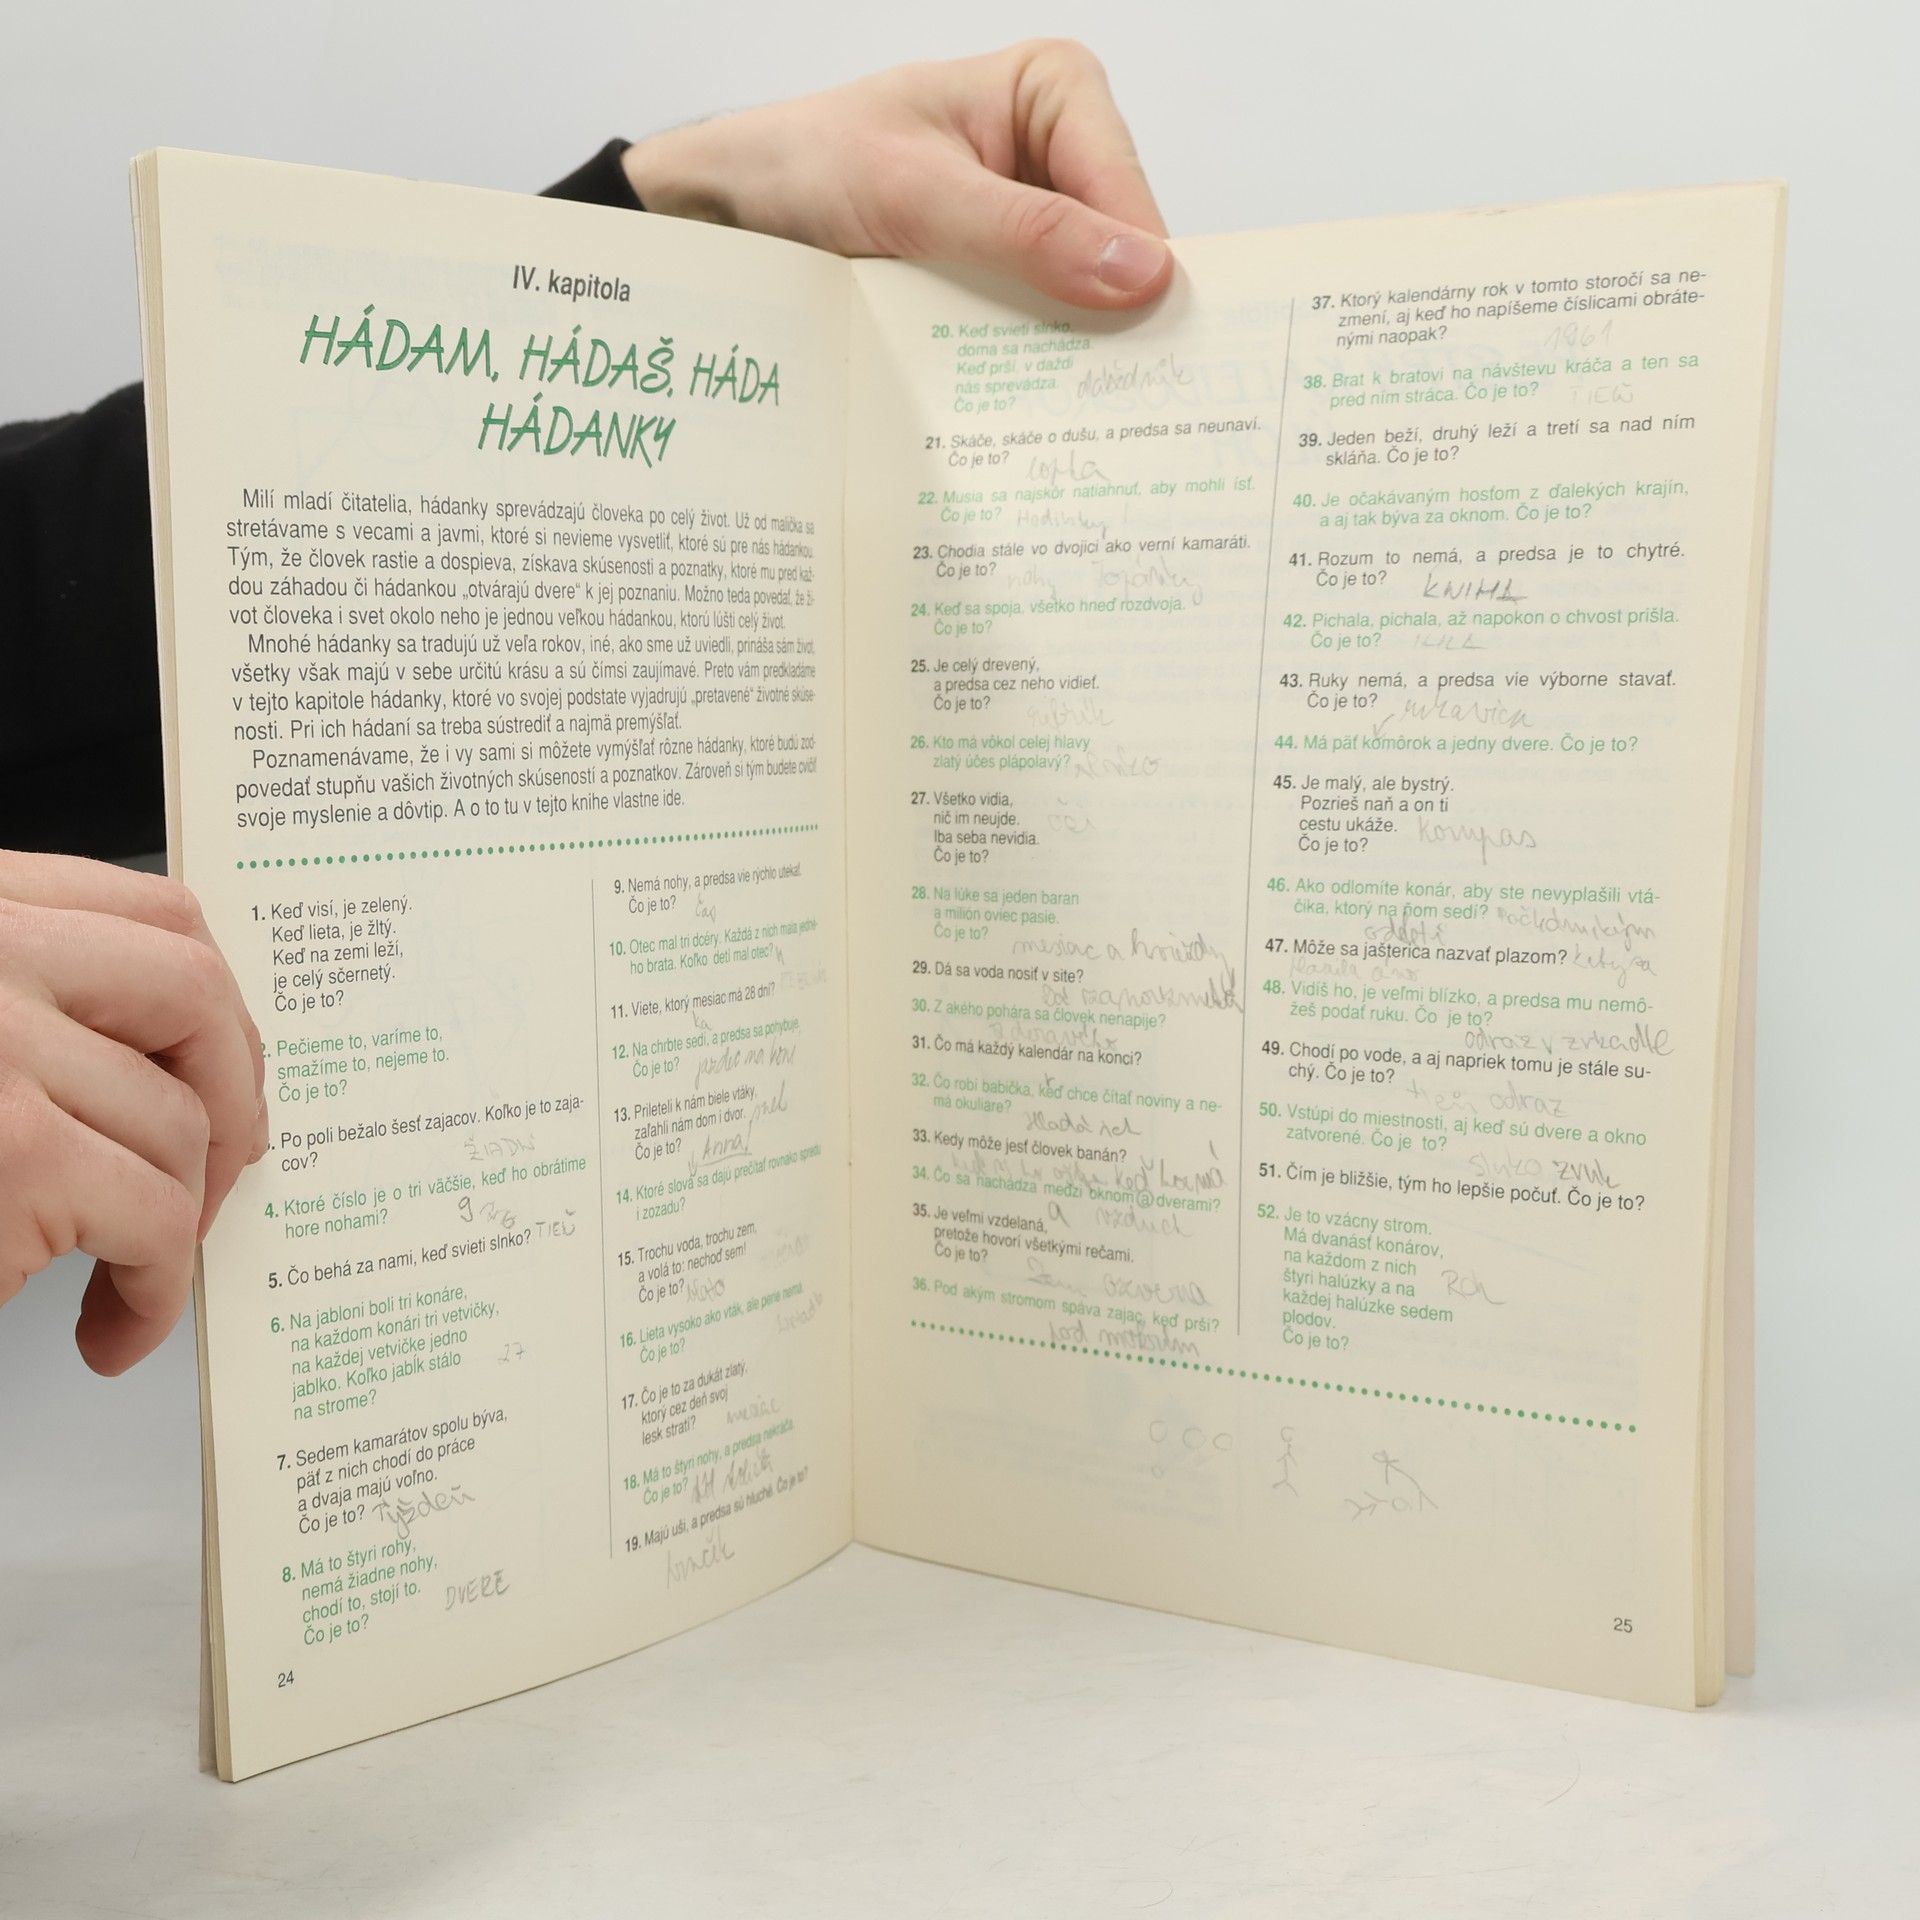 IV. kapitola
HÁDAM, HÁDAŠ, HÁDA
HÁDANKY
Milí mladí čitatelia, hádanky sprevádzajú človeka po celý život. Už od malička sa
stretávame s vecami a javmi, ktoré si nevieme vysvetliť, ktoré sú pre nás hádankou.
Tým, že človek rastie a dospieva, získava skúsenosti a poznatky, ktoré mu pred kaž-
dou záhadou či hádankou „otvárajú dvere“ k jej poznaniu. Možno teda povedať, že ži-
vot človeka i svet okolo neho je jednou veľkou hádankou, ktorú lúšti celý život.
Mnohé hádanky sa tradujú už veľa rokov, iné, ako sme už uviedli, prináša sám život,
všetky však majú v sebe určitú krásu a sú čímsi zaujímavé. Preto vám predkladáme
v tejto kapitole hádanky, ktoré vo svojej podstate vyjadrujú „pretavené“ životné skúse-
nosti. Pri ich hádaní sa treba sústrediť a najmä premýšľať.
Poznamenávame, že i vy sami si môžete vymýšľať rôzne hádanky, ktoré budú zod-
povedať stupňu vašich životných skúseností a poznatkov. Zároveň si tým budete cvičiť
svoje myslenie a dôvtip. A o to tu v tejto knihe vlastne ide.
1. Keď visí, je zelený.
Keď lieta, je žltý.
Keď na zemi leží,
je celý sčernetý.
Čo je to?
Pečieme to, varíme to,
smažíme to, nejeme to.
Čo je to?
Po poli bežalo šesť zajacov. Koľko je to zaja-
cov?
ŽIADNY
4. Ktoré číslo je o tri väčšie, keď ho obrátime
hore nohami? 9
5. Čo behá za nami, keď svieti slnko? TIEŇ
6. Na jabloni boli tri konáre,
na každom konári tri vetvičky,
na každej vetvičke jedno
jablko. Koľko jabĺk stálo
na strome? 27
7. Sedem kamarátov spolu býva,
päť z nich chodí do práce
a dvaja majú voľno.
Čo je to? Týždeň
8. Má to štyri rohy,
nemá žiadne nohy,
chodí to, stojí to.
Čo je to? DVERE
24
9. Nemá nohy, a predsa vie rýchlo utekať.
Čo je to? čas
10. Otec mal tri dcéry. Každá z nich mala jedné-
ho brata. Koľko detí mal otec? 4
11. Viete, ktorý mesiac má 28 dní?
12. Na chrbte sedí, a predsa sa pohybuje.
Čo je to? jazdec na koni
13. Prileteli k nám biele vtáky,
zaľahli nám dom i dvor.
Čo je to? sneh
Anna
14. Ktoré slová sa dajú prečítať rovnako spredu
i zozadu?
15. Trochu voda, trochu zem,
a volá to: nechoď sem!
Čo je to? blato
16. Lieta vysoko ako vták, ale perie nemá.
Čo je to?
17. Čo je to za dukát zlatý,
ktorý cez deň svoj
lesk stratí? mesiac
18. Má to štyri nohy, a predsa nekráča.
Čo je to?
19. Majú uši, a predsa sú hluché. Čo je to?
hrnček
20. Keď svieti slnko,
doma sa nachádza.
Keď prší, v daždi
nás sprevádza.
Čo je to? dáždnik
21. Skáče, skáče o dušu, a predsa sa neunaví.
Čo je to? lopta
22. Musia sa najskôr natiahnuť, aby mohli ísť.
Čo je to? Hodinky
23. Chodia stále vo dvojici ako verní kamaráti.
Čo je to? nohy Topánky
24. Keď sa spoja, všetko hneď rozdvoja.
Čo je to?
25. Je celý drevený,
a predsa cez neho vidieť.
Čo je to? rebrík
26. Kto má vôkol celej hlavy
zlatý účes plápolavý? slnko
27. Všetko vidia,
nič im neujde.
Iba seba nevidia.
Čo je to?
28. Na lúke sa jeden baran
a milión oviec pasie.
Čo je to?
mesiac a hviezdy
29. Dá sa voda nosiť v site?
30. Z akého pohára sa človek nenapije?
31. Čo má každý kalendár na konci?
r
32. Čo robí babička, keď chce čítať noviny a ne-
má okuliare?
Hladá ich
33. Kedy môže jesť človek banán?
34. Čo sa nachádza medzi oknom a dverami?
a vzduch
35. Je veľmi vzdelaná,
pretože hovorí všetkými rečami.
Čo je to? ozvena
36. Pod akým stromom spáva zajac, keď prší?
pod mokrým
37. Ktorý kalendárny rok v tomto storočí sa ne-
zmení, aj keď ho napíšeme číslicami obráte-
nými naopak? 1961
38. Brat k bratovi na návštevu kráča a ten sa
pred ním stráca. Čo je to? TIEŇ
39. Jeden beží, druhý leží a tretí sa nad ním
skláňa. Čo je to?
40. Je očakávaným hosťom z ďalekých krajín,
a aj tak býva za oknom. Čo je to?
41. Rozum to nemá, a predsa je to chytré.
Čo je to? KNIHA
42. Pichala, pichala, až napokon o chvost prišla.
Čo je to? IHLA
43. Ruky nemá, a predsa vie výborne stavať.
Čo je to? rukavica
44. Má päť komôrok a jedny dvere. Čo je to?
45. Je malý, ale bystrý.
Pozrieš naň a on ti
cestu ukáže.
Čo je to? Kompas
46. Ako odlomíte konár, aby ste nevyplašili vtá-
čika, ktorý na ňom sedí?
47. Môže sa jašterica nazvať plazom?
48. Vidíš ho, je veľmi blízko, a predsa mu nemô-
žeš podať ruku. Čo je to?
odraz v zrkadle
49. Chodí po vode, a aj napriek tomu je stále su-
chý. Čo je to?
tieň odraz
50. Vstúpi do miestnosti, aj keď sú dvere a okno
zatvorené. Čo je to?
slnko zvuk
51. Čím je bližšie, tým ho lepšie počuť. Čo je to?
52. Je to vzácny strom.
Má dvanásť konárov,
na každom z nich
štyri halúzky a na
každej halúzke sedem
plodov.
Čo je to? Rok
25